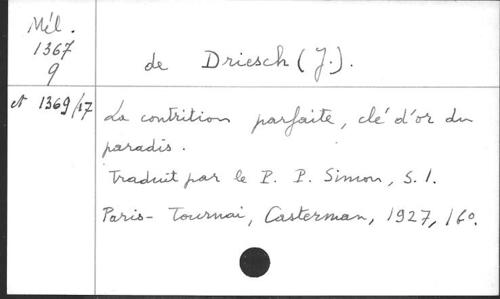 Mél.
1367
9
de Driesch (J.).
et 1369/17
La contrition parfaite, clé d'or du
paradis.
Traduit par le P. P. Simon, S.I.
Paris-Tournai, Casterman, 1927, 16°.